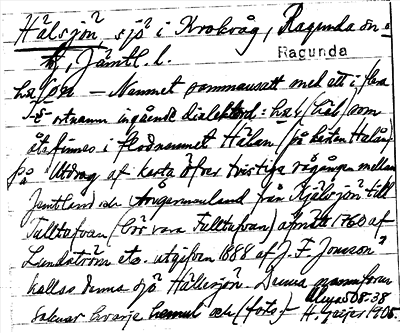 Hälsjön, sjö i Krokvåg, Ragunda sn
Ragunda
Jämtl. l.
– Namnet sammansatt med ett i flera
ortnamn ingående dialektord: hæl, häl, som
återfinnes i flodnamnet Hälan, (på kartan Halån)
på "Utdrag af karta öfver tvistiga rågången mellan
Jemtland och Ångermanland från Kjälsjön till
Tulltafvan (bör vara Fulltafvan) afmätt 1760 af
Lundström etc. utgifven 1888 af J. F. Jonsson"
kallas denna sjö Hällesjön. Denna namnform
saknar hvarje hemul och (fots)-
H. Geijer 1908.